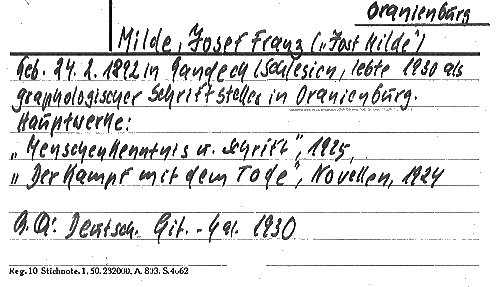 Oranienburg
Milde, Josef Franz („Jost Milde")
Geb. 24. 2. 1892 in Gandech/Schlesien, lebte 1930 als
graphologischer Schriftsteller in Oranienburg.
Hauptwerke:
„Menschenkenntnis u. Schrift", 1925,
„Der Kampf mit dem Tode", Novellen, 1924
Deutsch. Lit.-Kal. 1930
Reg. 10 Stichnote. 1. 50. 232000. A. 803. S. 4062